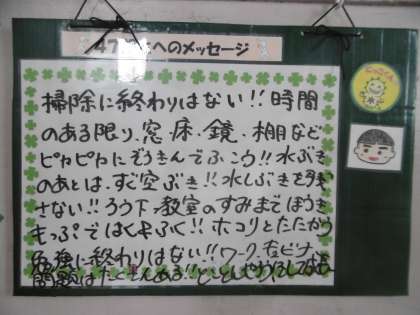 へのメッセージ
掃除に終わりはない!!時間
のある限り、窓・床・鏡・棚など
ピカピカにぞうきんでふこう!!水ぶき
のあとは、すぐ空ぶき!!水しぶきを
さない!!ろう下、教室のすみまでほうき
もっぷではく&ふく!!ホコリとたたかう
勉強に終わりはない!!ワーク
問題はたくさんある!!